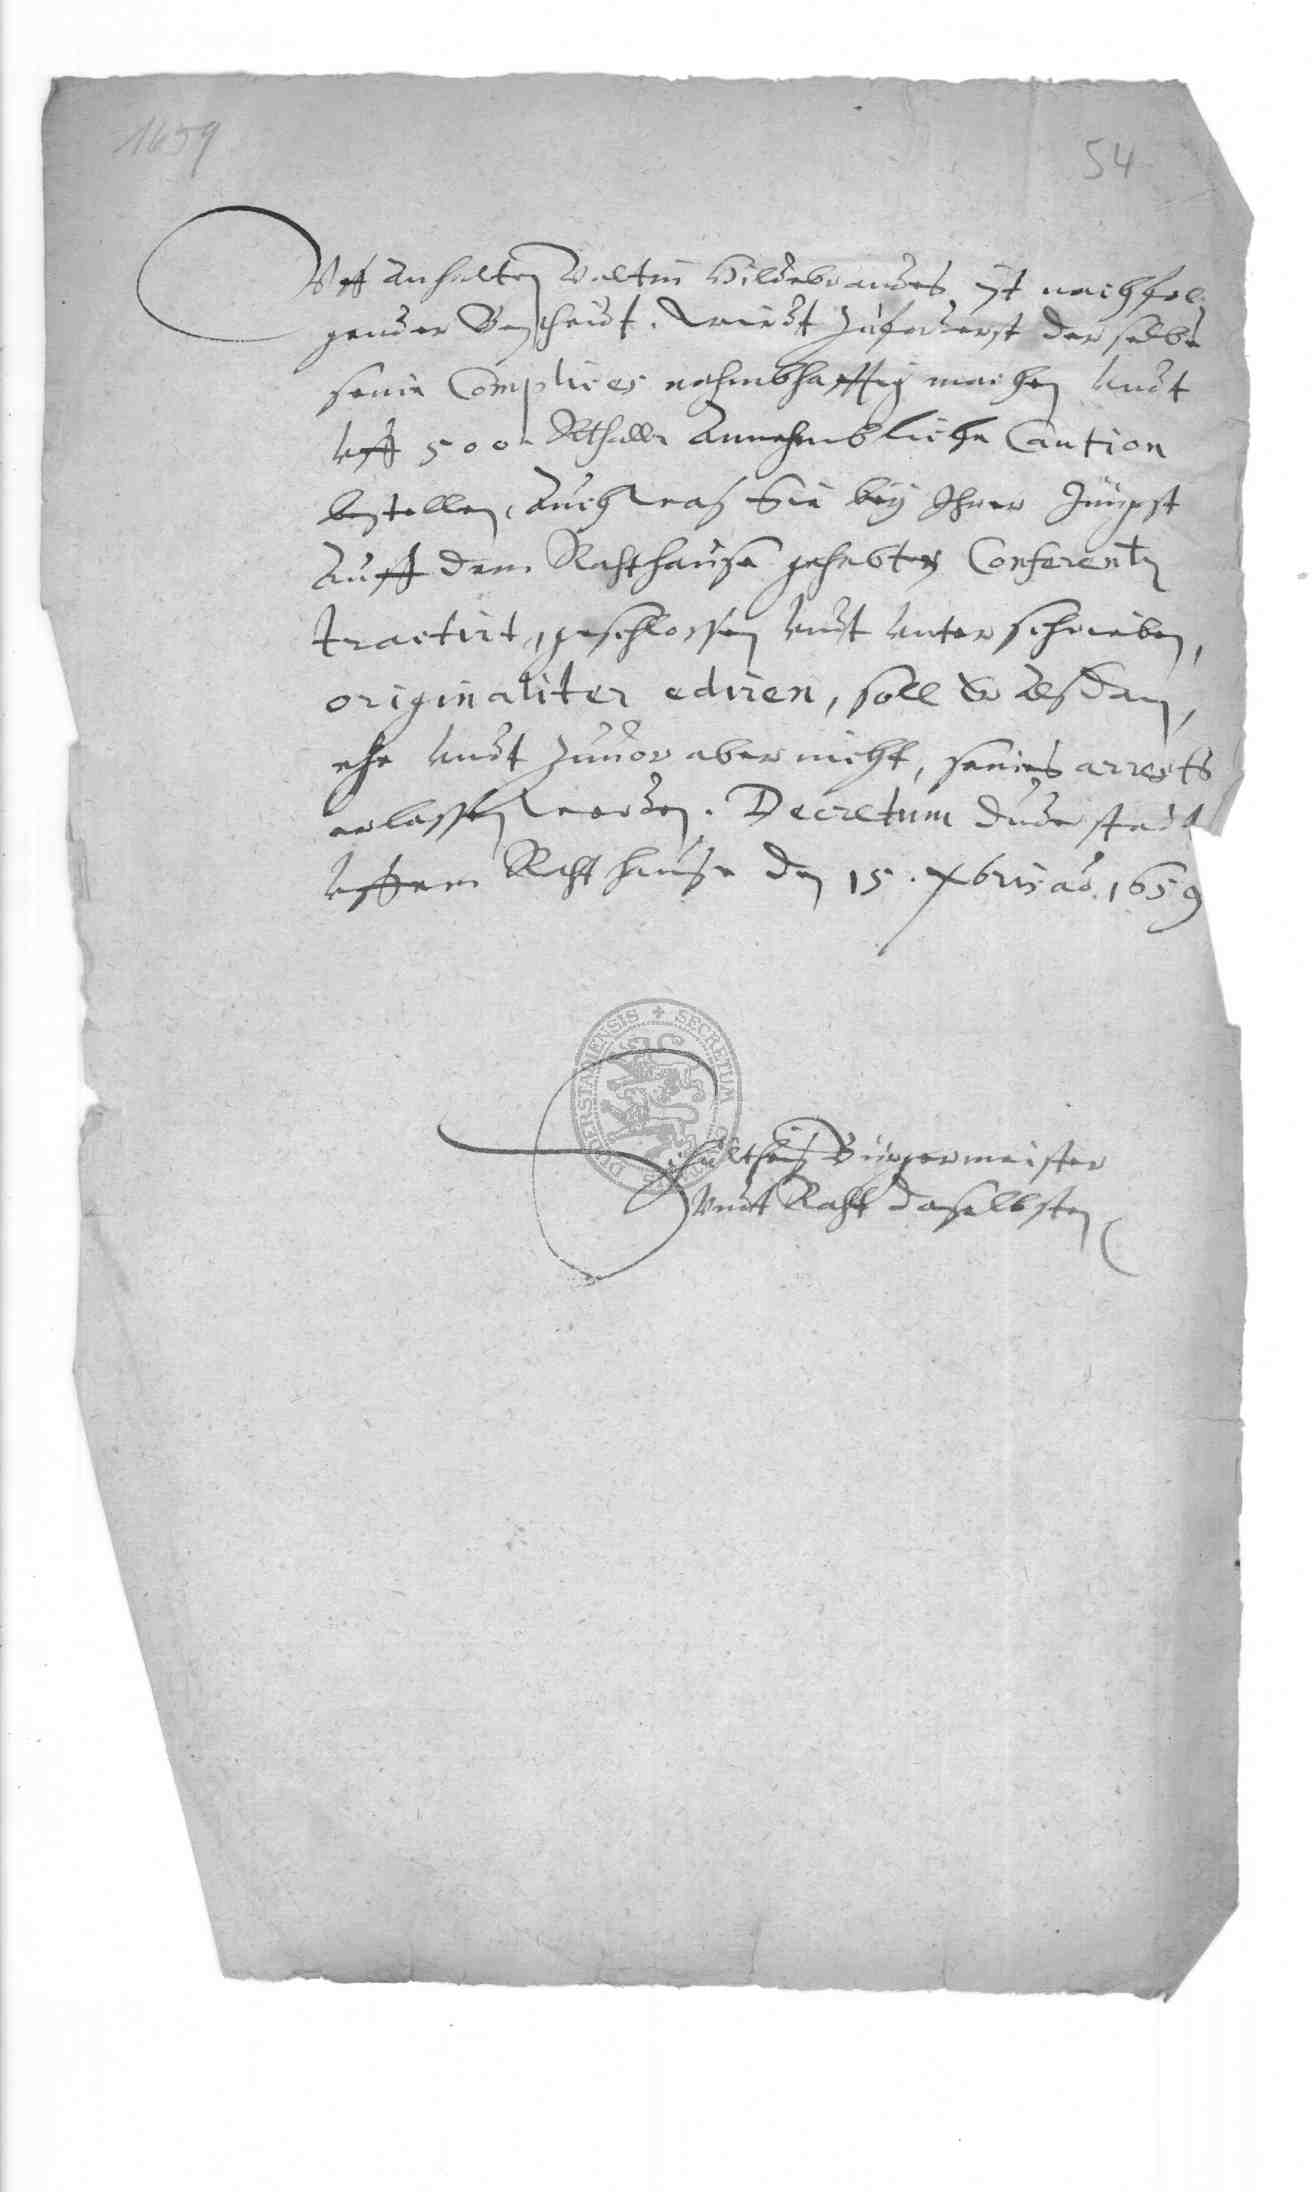 1659
54
Uff Anhalten Valtin Hildebrandes ist nachfol-
gender Bescheidt. Wirdt zuforderst der selbe
seine Complices nahmbhafftig machen undt
uff 500 Rthall. Annehmbliche Caution
bestellen, Auch was Sie bey Ihrer Jüngst
Auff dem Rahthause gehabten Conferentz
tractirt, geschlossen undt unterschrieben,
originaliter ediren, soll Er Alsdan,
ehe undt zuvor aber nicht, seines arrests
erlassen werden. Decretum Duderstadt
uffem Rahthause den 15. Xbris aō. 1659
SECRETUM DUDERSTADIENSIS
Schultheiß Bürgermeister
undt Raht daselbsten